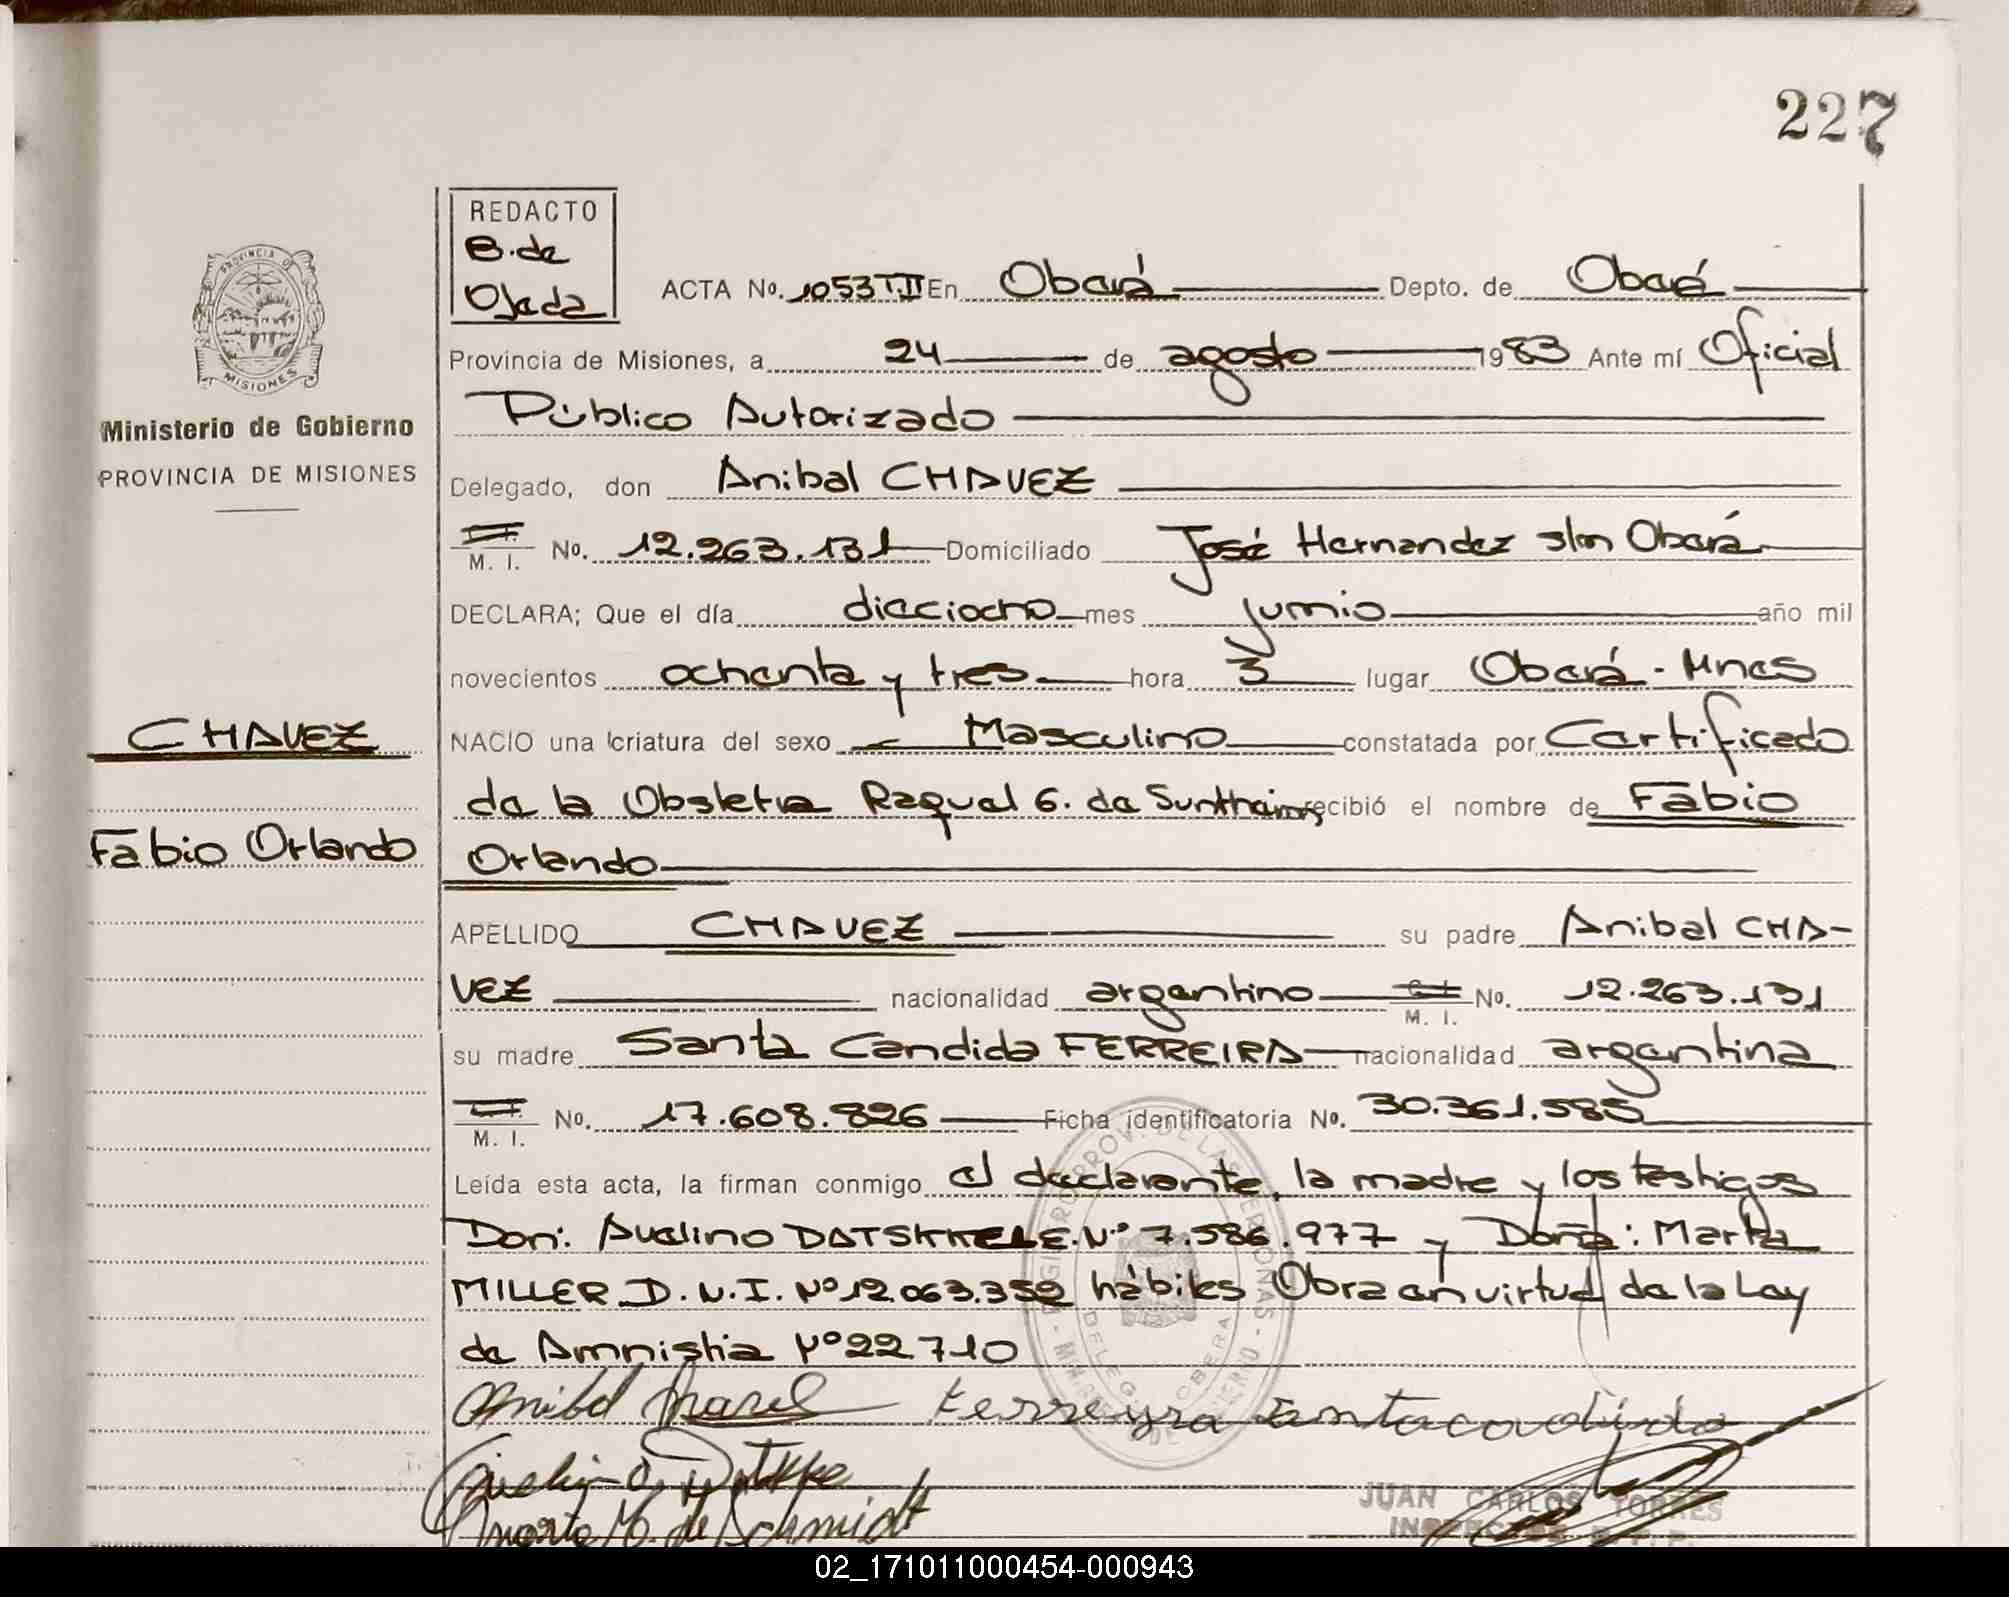 227
REDACTO
B. de
Ojeda
ACTA No. 1053 T II En Oberá Depto. de Oberá
PROVINCIA DE
MISIONES
Provincia de Misiones, a 24 de agosto 1983 Ante mí Oficial
Ministerio de Gobierno
PROVINCIA DE MISIONES
Público Autorizado
Delegado, don Anibal CHAVEZ
M. I. No. 12.263.131 Domiciliado José Hernandez s/n Oberá
DECLARA; Que el día dieciocho mes junio año mil
novecientos ochenta y tres hora 3 lugar Oberá - Mnes
CHAVEZ
NACIO una criatura del sexo Masculino constatada por Certificado
de la Obstetra Raquel G. de recibió el nombre de Fabio
Fabio Orlando
Orlando
APELLIDO CHAVEZ su padre Anibal CHA-
VEZ nacionalidad argentino C. I. M. I. No. 12.263.131
su madre Santa Candida FERREIRA nacionalidad argentina
M. I. No. 17.608.826 Ficha identificatoria No. 30.361.585
Leída esta acta, la firman conmigo el declarante, la madre y los testigos
Don: Avelino L.E. Nº 7.586.977 y Doña: Marta
MILLER D.N.I. Nº 12.063.352 hábiles Obra en virtud de la Ley
de Amnistia Nº 22710
Anibal Ferreyra Santa candida
Marta M. de Schmidt
JUAN CARLOS TORRES
INSPECTOR
02_171011000454-000943